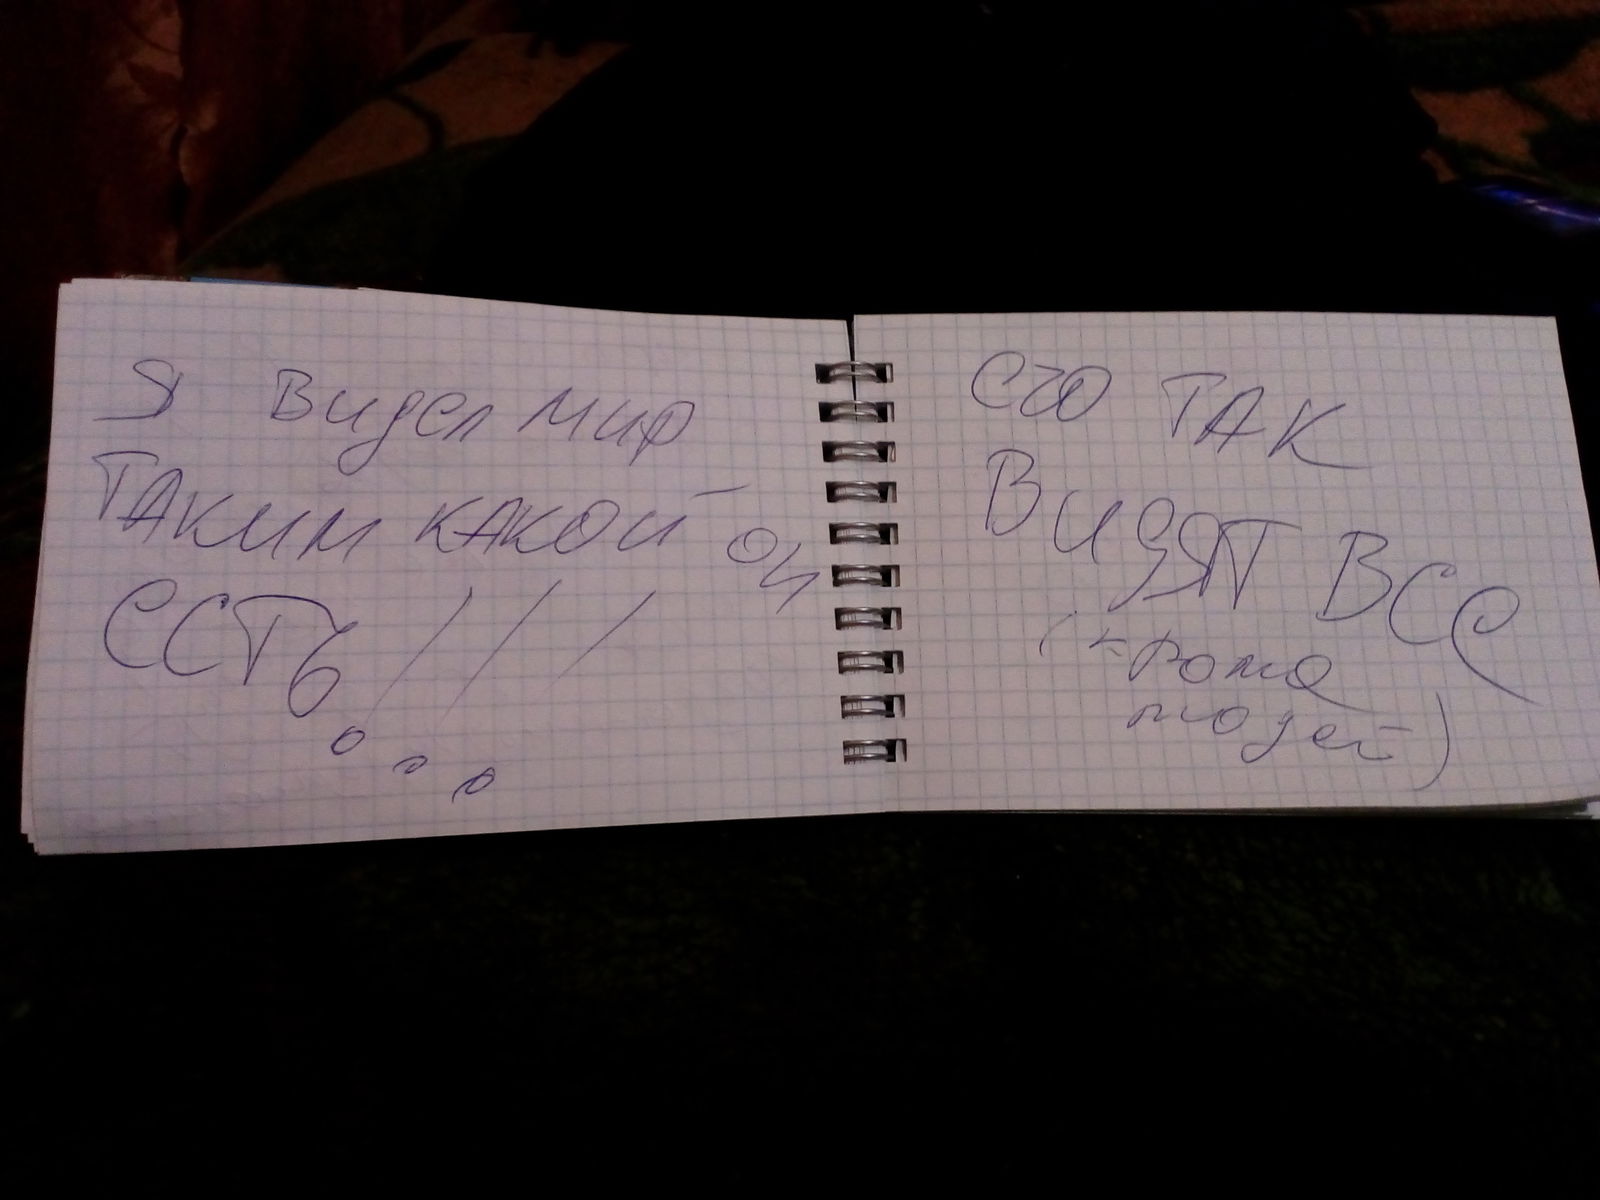 Я видел мир
ТАКИМ КАКОЙ он
ЕСТЬ!!!
ЕГО ТАК
ВИДЯТ ВСЕ
(кроме
людей)